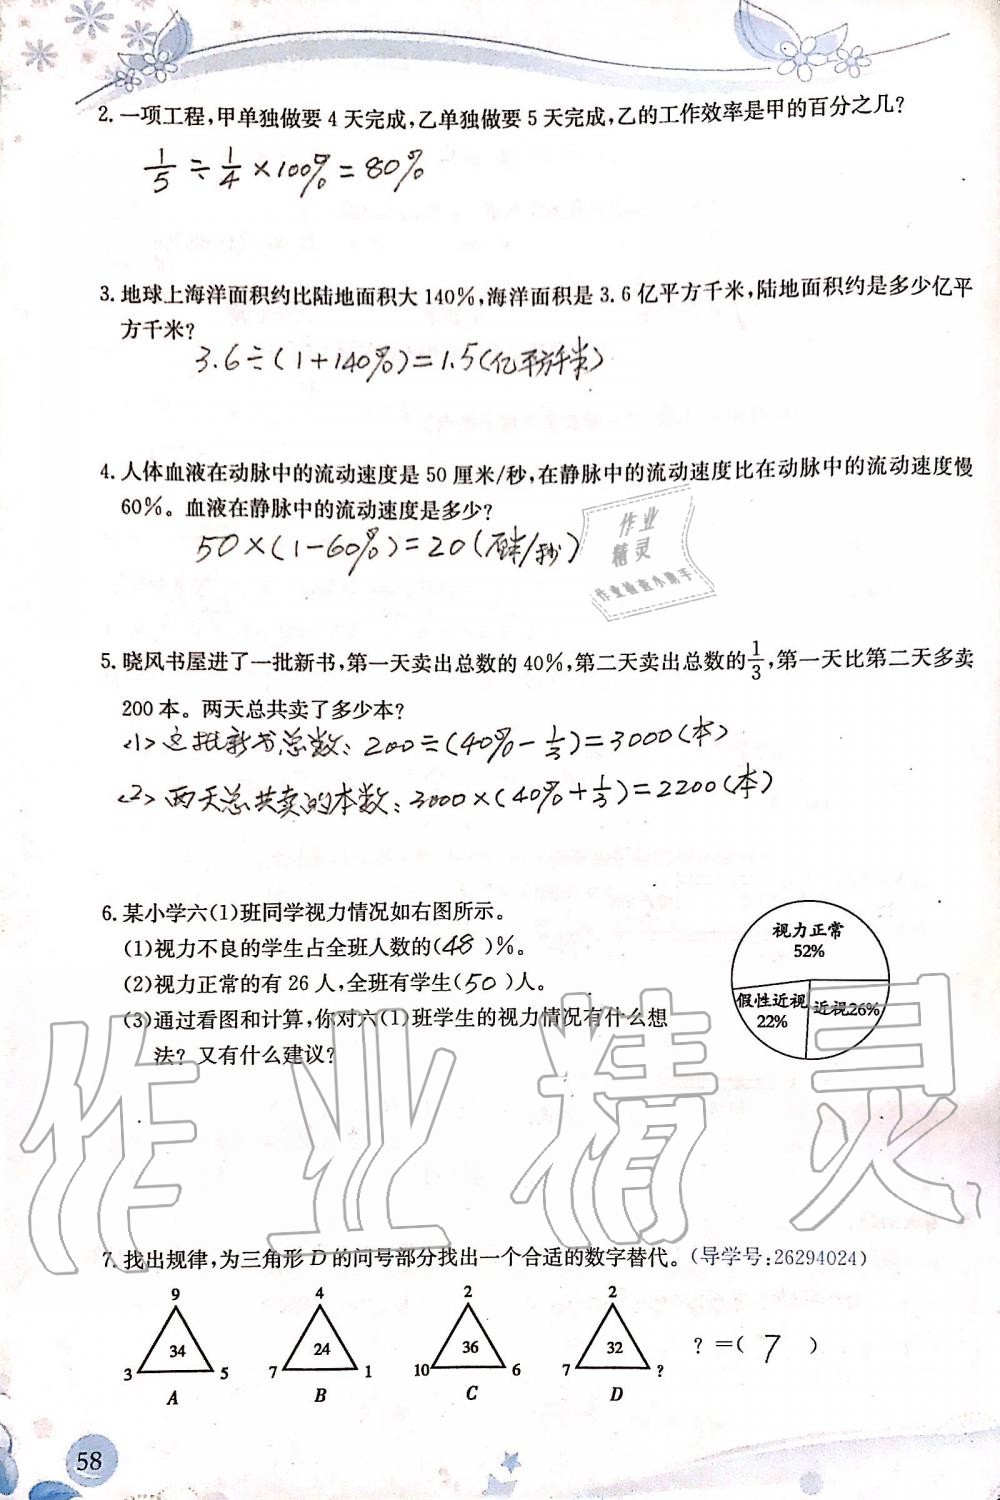 2. 一项工程,甲单独做要 4 天完成,乙单独做要 5 天完成,乙的工作效率是甲的百分之几?
1/5 ÷ 1/4 × 100% = 80%
3. 地球上海洋面积约比陆地面积大 140%,海洋面积是 3.6 亿平方千米,陆地面积约是多少亿平
方千米?
3.6÷(1+140%)=1.5(亿平方千米)
4. 人体血液在动脉中的流动速度是 50 厘米/秒,在静脉中的流动速度比在动脉中的流动速度慢
60%。血液在静脉中的流动速度是多少?
50×(1-60%)=20(厘米/秒)
作业
精灵
作业检查小助手
5. 晓风书屋进了一批新书,第一天卖出总数的 40%,第二天卖出总数的1/3,第一天比第二天多卖
200 本。两天总共卖了多少本?
<1>这批新书总数: 200÷(40%-1/3)=3000(本)
<2>两天总共卖的本数: 3000×(40%+1/3)=2200(本)
6. 某小学六(1)班同学视力情况如右图所示。
(1)视力不良的学生占全班人数的(48)%。
(2)视力正常的有 26 人,全班有学生(50)人。
(3)通过看图和计算,你对六(1)班学生的视力情况有什么想
法? 又有什么建议?
视力正常
52%
假性近视
22%
近视26%
作业精灵
7. 找出规律,为三角形 D 的问号部分找出一个合适的数字替代。(导学号:26294024)
9 4 2 2
34 24 36 32 ?=( 7 )
3 5 7 1 10 6 7 ?
A B C D
58